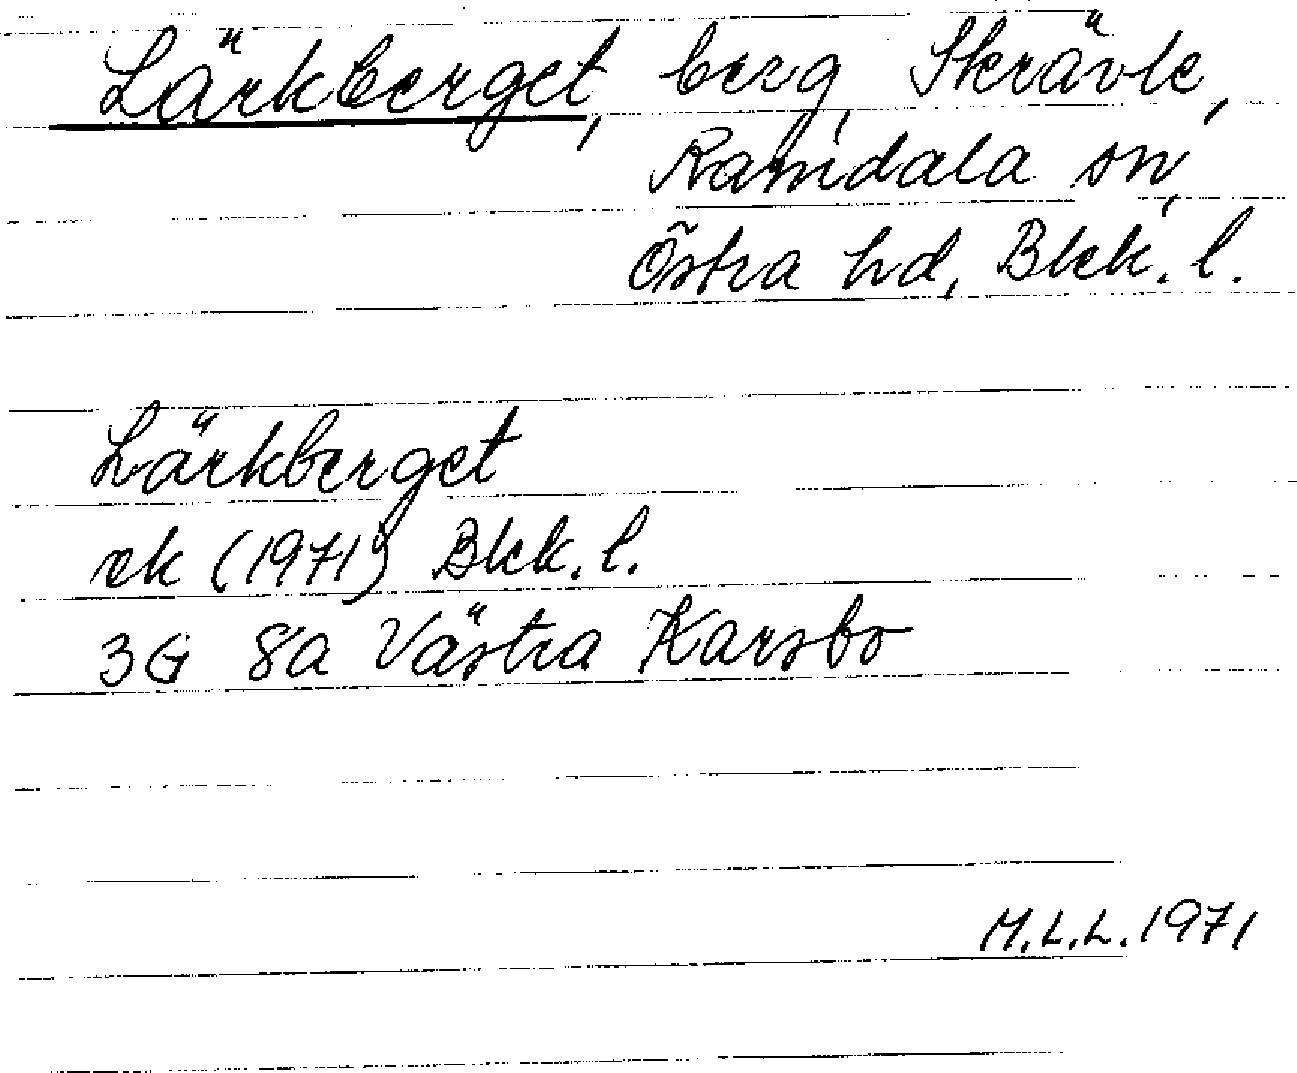 Lärkberget, berg, Skrävle,
Ramdala sn,
Östra hd, Blek. l.
Lärkberget
ek (1971) Blek. l.
3G 8a Västra Karsbo
M.L.L. 1971